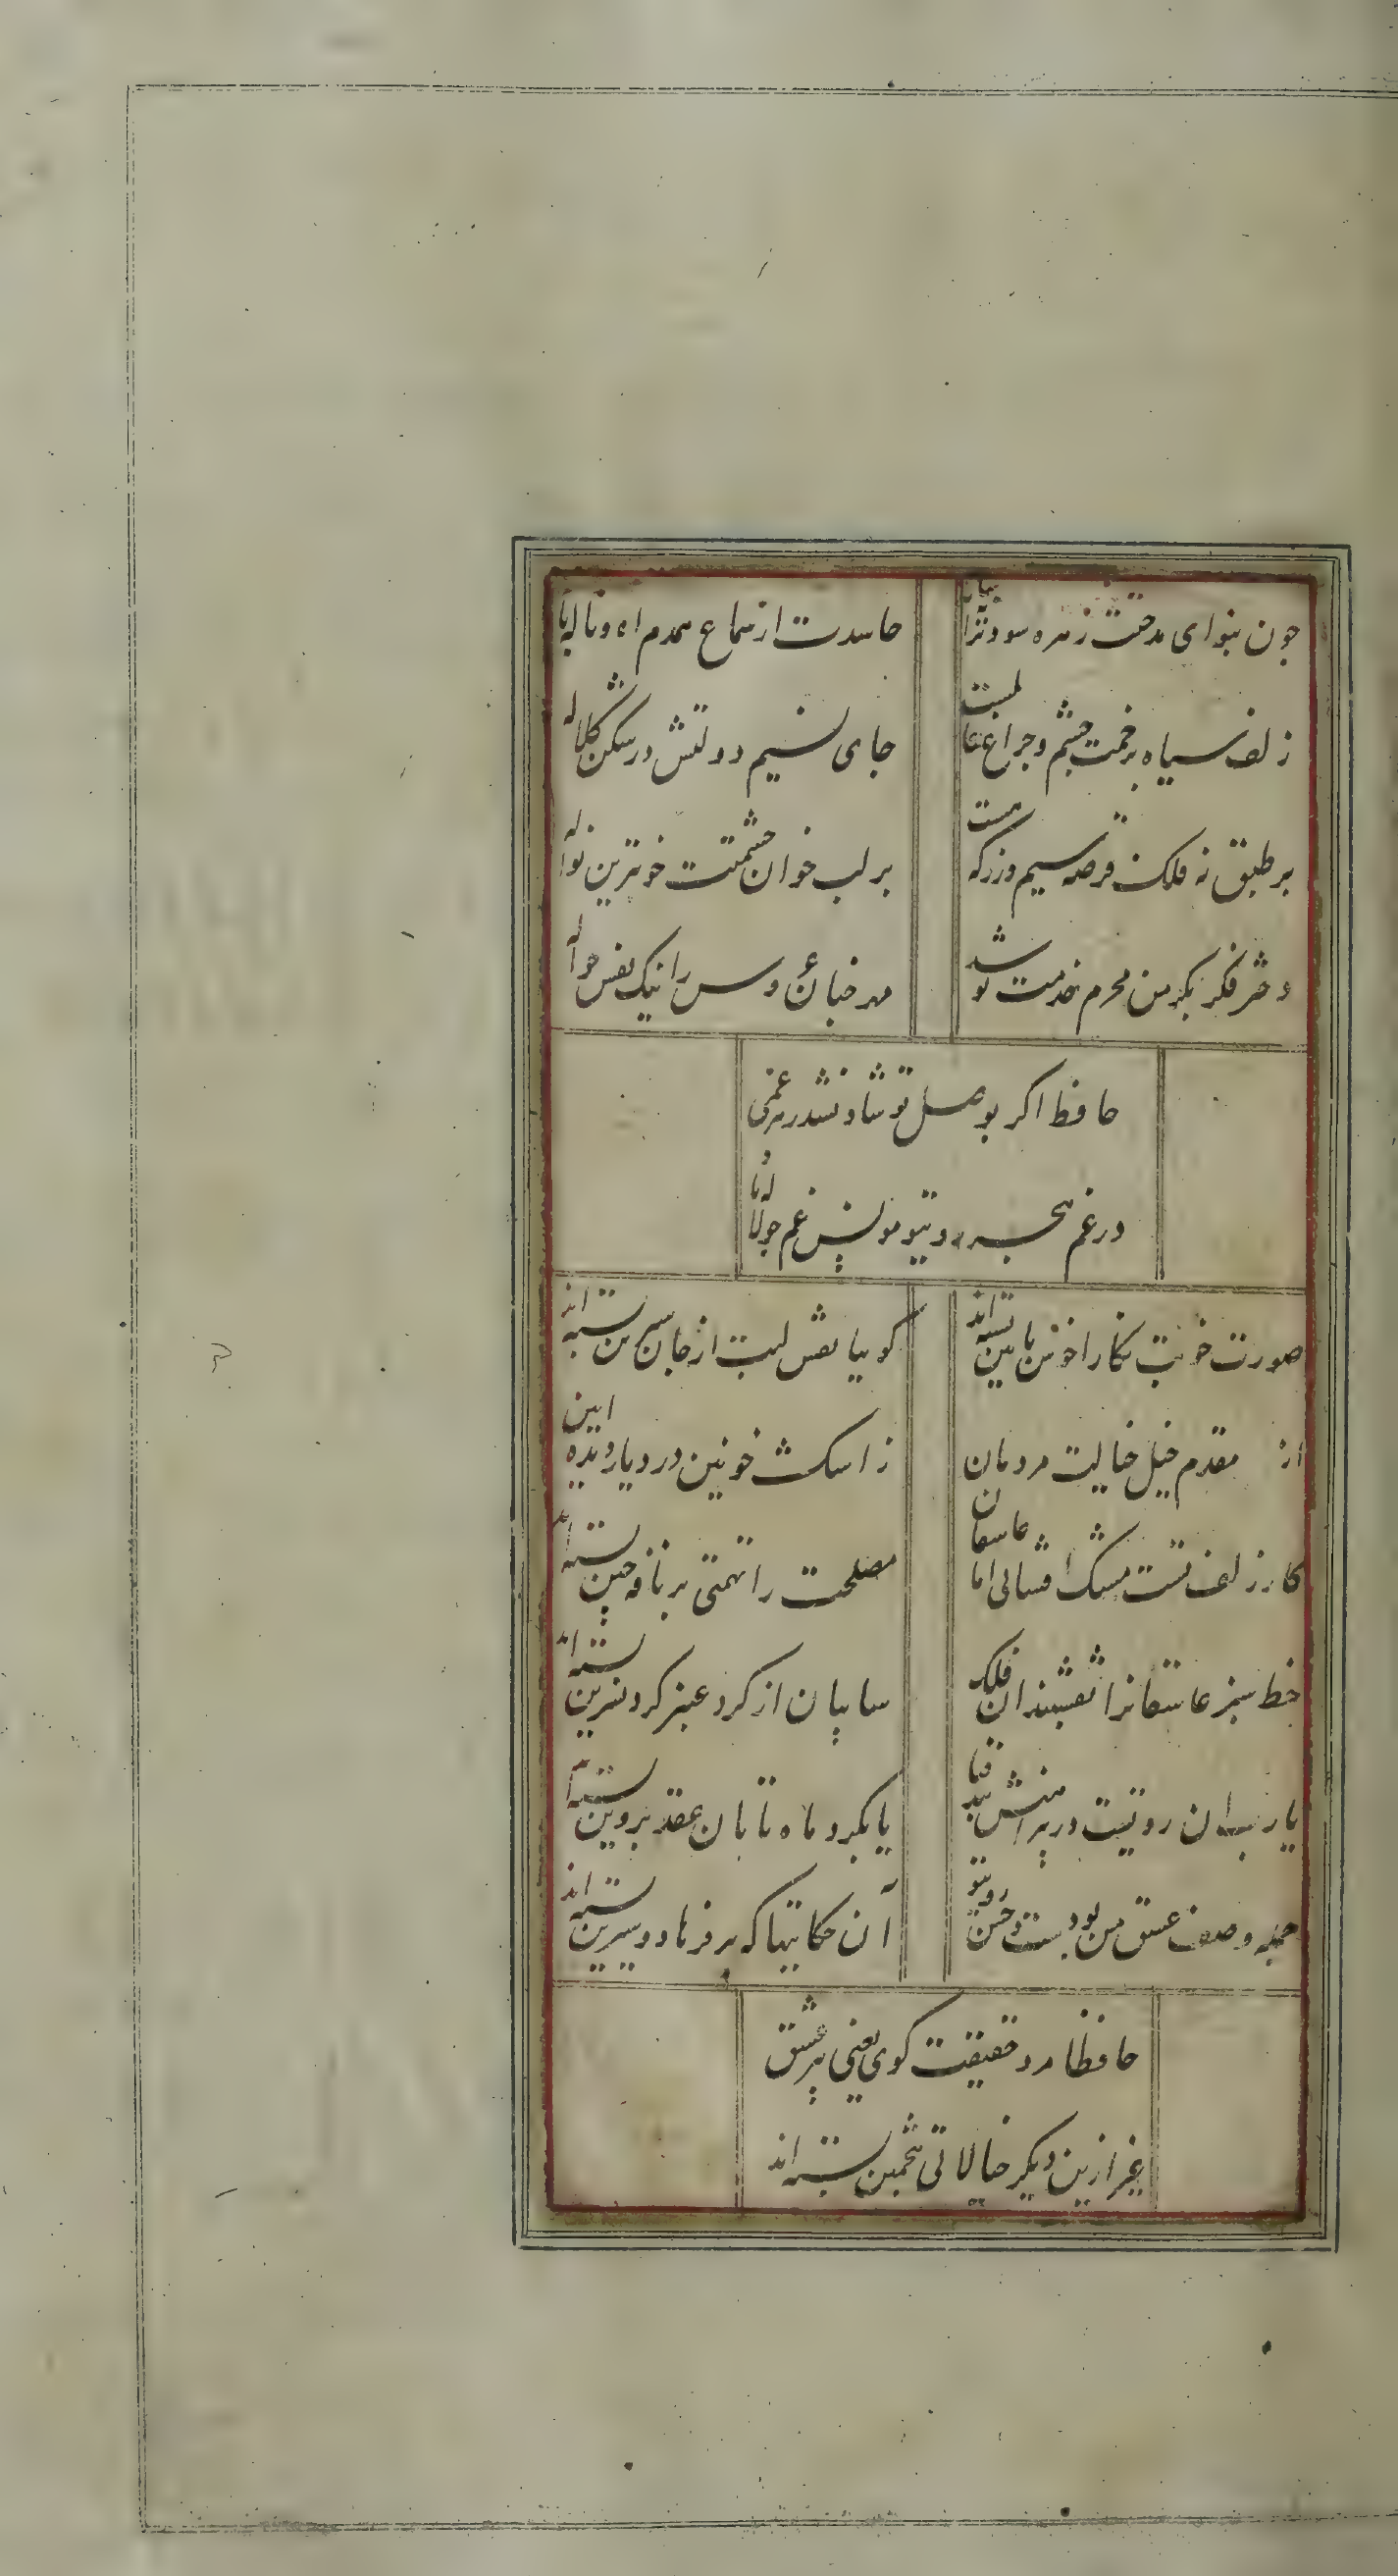 چون بنوای مدحتت زهره سود ترانها
حاسدت از سماع همدم اه و نالها
زلف سیاه برخمت چشم و چراغ عالمست
جای نسیم دولتش در شکن کلاله
بر طبق نه فلک قرصه سیم و زر که هست
بر لب خوان حشمتت خوبترین نواله
دختر فکر بکر من محرم خدمت تو شد
مهر چنان عروس را نیک نفس حواله
حافظ اگر بوصل تو شاد نشد
در غم هجر روی تو مونس غم
صورت خوبت نکارا خوش بایین بسته اند
کوییا نقش لبت از جان شیرین بسته اند
از مقدم خیل خیالت مردمان
ز اشک خونین در دیار دیده ایین
کار زلف تست مشک افشانی اما عاشقان
مصلحت را تهمتی بر نافه چین بسته اند
خط سبز عاشقانرا نقشبندان فلک
سایبان از کرد عنبر کرد نسرین بسته اند
یارب ان رویست در پیراهنش بند قبا
یا بکرد ماه تابان عقد پروین بسته
جمله وصف عشق من بودست و حسن روی تو
آن حکایتها که بر فرهاد و شیرین بسته اند
حافظا مرد حقیقت کوی یعنی پیر عشق
غیر ازین دیکر خیالاتی بتخمین بسته اند